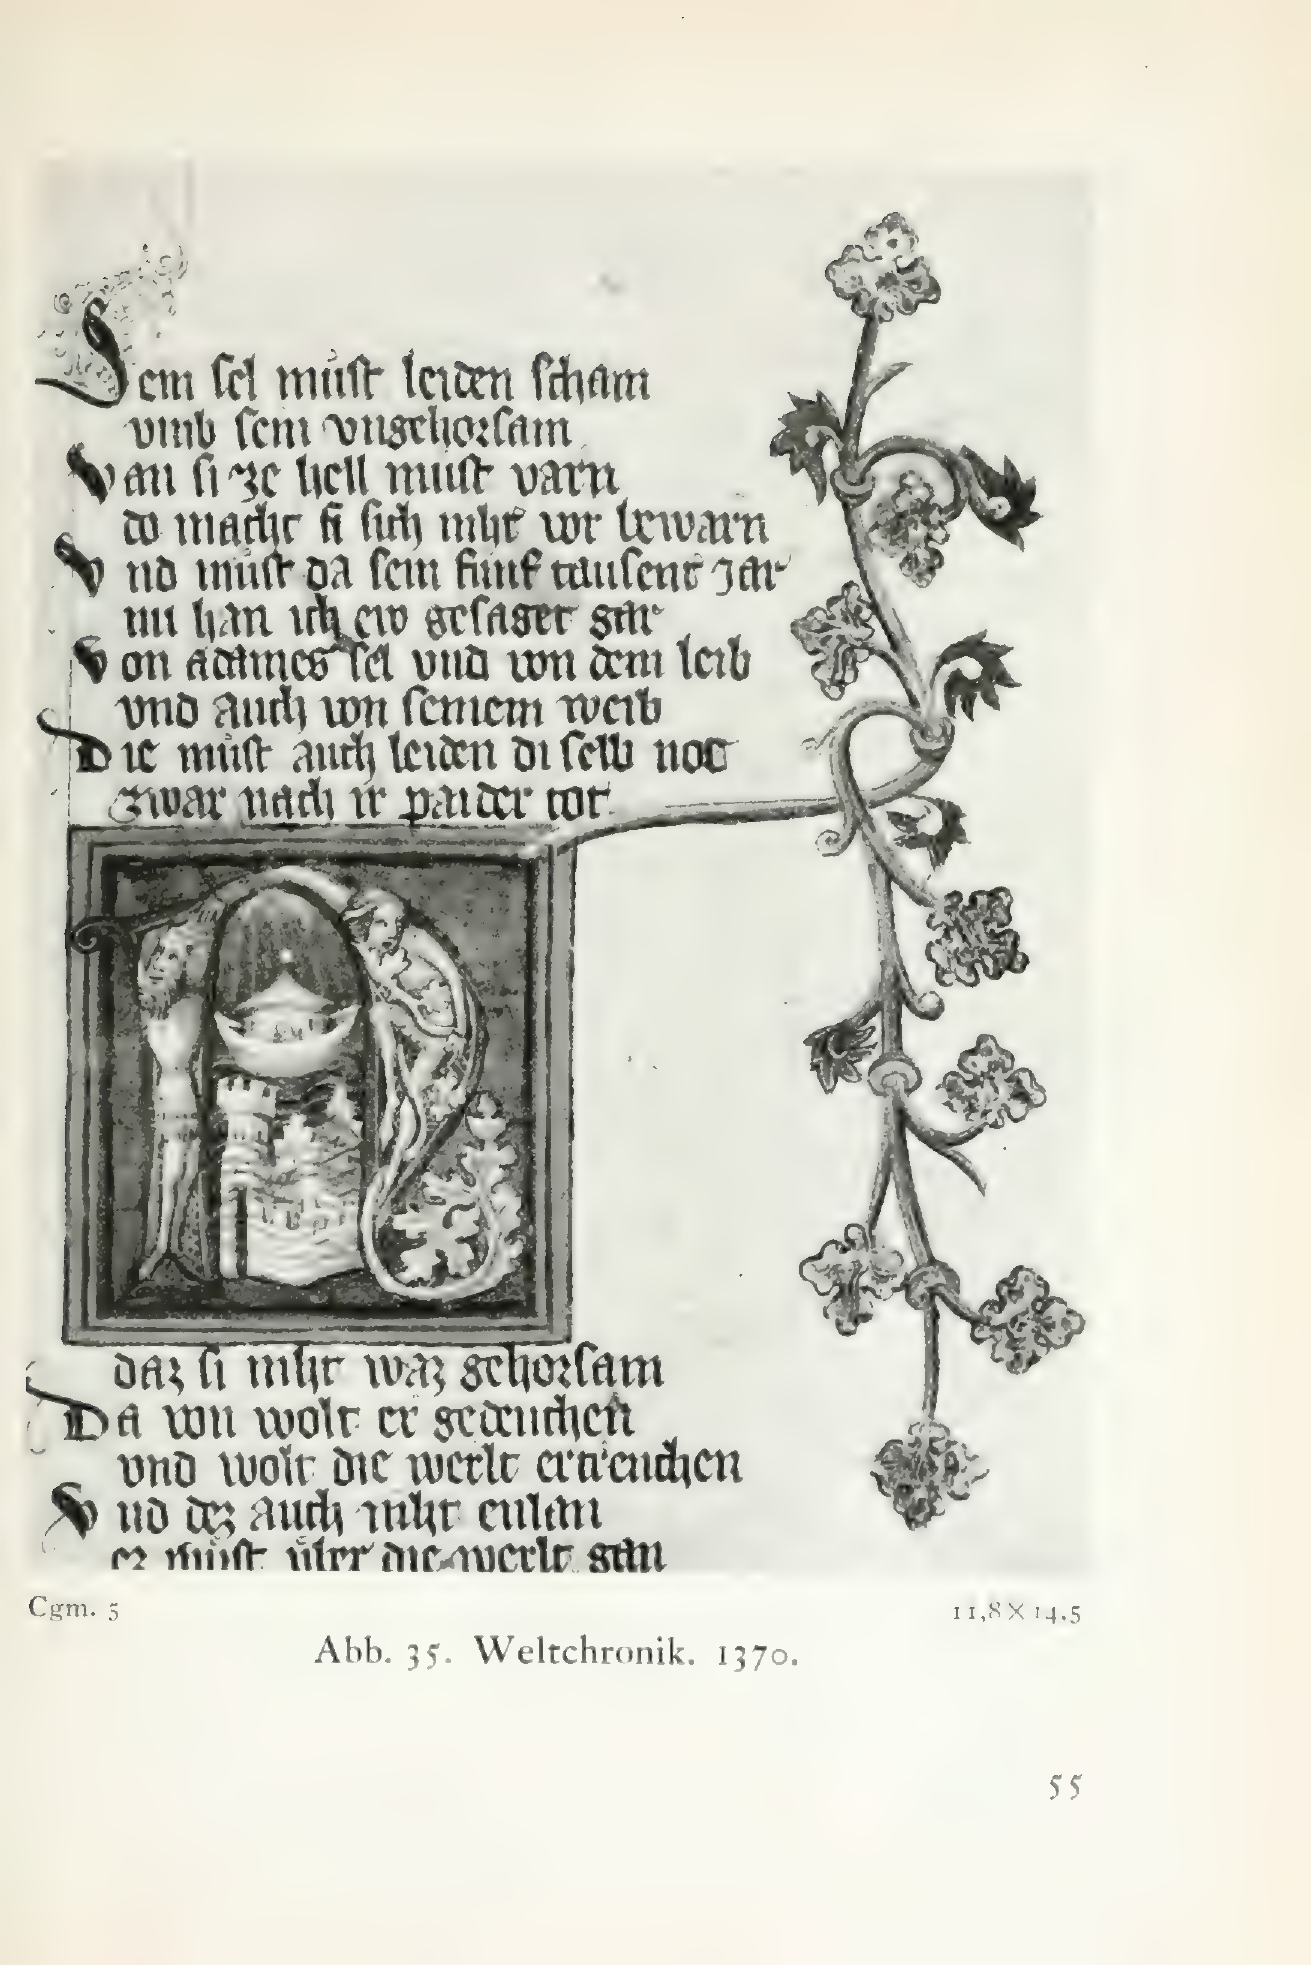 Sein sel můst leiden scham
vmb sein vngehorsam
Van si ze hell můst varn
do macht si sich niht vor bewarn
Vnd můst da sein fünf tausent jar
nu han ich ew gesaget gar
Von adames sel vnd von dem leib
vnd auch von seinem weib
Die můst auch leiden di selb not
zwar nach ir paider tot
daz si niht waz gehorsam
Da von wolt er gedenchen
vnd wolt die werlt ertrenchen
Vnd dez auch niht enlan
ez můst über die werlt gan
Cgm. 5
11,8 X 14,5
Abb. 35. Weltchronik. 1370.
55